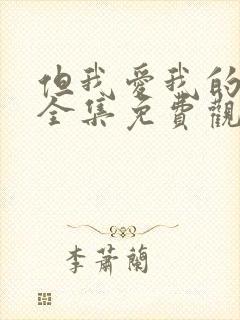 但我愛我的
全集免費觀
李蕭蘭